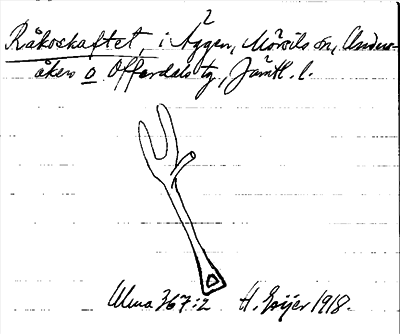 2
Råkoskaftet, i Äggen, Mörsils sn, Unders-
åkers o Offerdals tg, Jämtl. l.
Ulma 367:2 H. Geijer 1918.